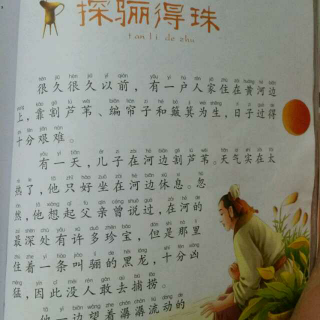 探骊得珠
tan li de zhu
很久很久以前，有一户人家住在黄河边
上，靠割芦苇、编帘子和簸箕为生，日子过得
十分艰难。
有一天，儿子在河边割芦苇。天气实在太
热了，他只好坐在河边休息。忽
然，他想起父亲曾说过，在河的
最深处有许多珍宝，但是那里
住着一条叫骊的黑龙，十分凶
猛，因此没人敢去捕捞。
他一边望着潺潺流动的